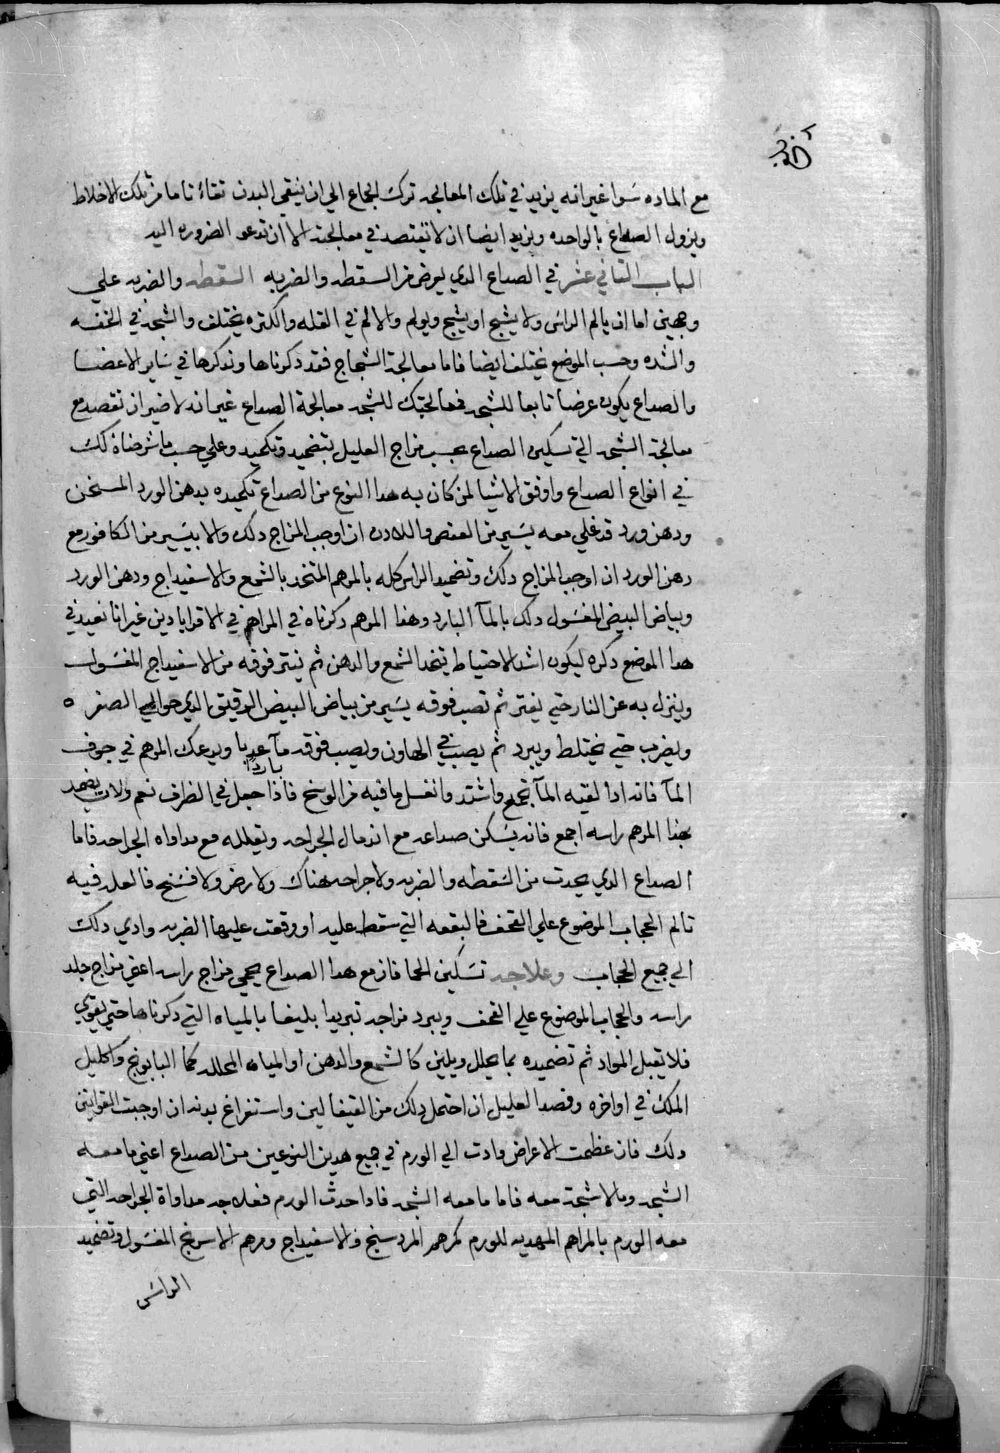 مع الماده سوا غير انه يزيد في تلك المعالجه ترك الجماع الي ان ينقي البدن نقاء تاما من تلك الاخلاط
ويزول الصداع بالواحده ويزيد ايضا ان لا تقتصد في معالجته الا ان تدعو الضروره اليه
الباب الثاني عشر في الصداع الدي يعرض من السقطه والضربه السقطه والضربه علي
وجهين اما ان يالم الراس ولا يشج او يشج ويولم والالم في القله والكثره يختلف والشجه في الخفه
والشده وحسب الموضع يختلف ايضا فاما معالجة الشجاج فقد دكرناها وندكرها في ساير الاعضا
والصداع يكون عرضا تابعا للشجه فمعالجتك للشجه معالجة الصداع غير انه لا ضير ان تقصد مع
معالجة الشجه الي تسكين الصداع بحسب مزاج العليل بتضميد وتكميد وعلي حسب ما شرحناه لك
في انواع الصداع واوفق الاشيا لمن كان به هدا النوع من الصداع تكميده بدهن الورد المسخن
ودهن ورد قد غلي معه يسير من العفص واللادن ان اوجب المزاج دلك والا بيسير من الكافور مع
دهن الورد ان اوجب المزاج دلك وتضميد الراس كله بالمرهم المتخد بالشمع والاسفيداج ودهن الورد
وبياض البيض المغسول دلك بالمآ البارد وهدا المرهم دكرناه في المراهم في الاقرابادين غير انا نعيد في
هدا الموضع دكره ليكون اشد لاحتياط يتخد الشمع والدهن ثم ينثر فوقه من الاسفيداج المغسول
وينزل به عن النار حتي يفتر ثم تصب فوقه يسير من بياض البيض الرقيق الدي حوالي الصفره
ويضرب حتي يختلط ويبرد ثم يصب في الهاون ويصب فوقه مآ عدبا ويدعك المرهم في جوف
باردا
المآ فانه ادا لقيه المآ تجمع واشتد وانغسل ما فيه من الوسخ فادا جعل في الظرف نعم ولان يضمد
بهدا المرهم راسه اجمع فانه يسكن صداعه مع اندمال الجراحه وتعلله مع مداواه الجراحه فاما
الصداع الدي يحدث من السقطه والضربه ولا جراحه هناك ولا رض ولا فسخ فالعله فيه
تالم الحجاب الموضوع علي القحف فالبقعه التي سقط عليه او وقعت عليها الضربه وادي دلك
الي جميع الحجاب وعلاجه تسكين الحما فان مع هدا الصداع يحمي مزاج راسه اعني مزاج جلد
راسه والحجاب الموضوع علي القحف ويبرد مزاجه تبريدا بليغا بالمياه التي دكرناها حتي يقوي
فلا يقبل المواد ثم تضميده بما يحلل ويلين كالشمع والدهن او المياه المحلله كما البابونج واكليل
الملك في اواخره وفصد العليل ان احتمل دلك من القيفالين واستفراغ بدنه ان اوجبت القوانين
دلك فان عظمت الاعراض وادت الي الورم في جميع هدين النوعين من الصداع اعني ما معه
الشجه وما لا شجة معه فاما ما معه الشجه فادا حدث الورم فعلاجه مداواة الجراحه التي
معه الورم بالمراهم المهديه للورم كمرهم المردسنج والاسفيداج ومرهم الاسرنج المغسول وتضميد
الراس